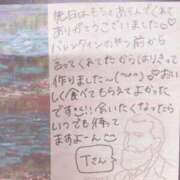 先日はもちとあそんでくれて
ありがとうございました♡
バレンタインのずっと前から
あってくれてたからはりきって
作りました〜(^^)♡
しく食べてもらえてよかった
です☺!!会いたくなったら
いつでも待って
ますよーん☺
Tさん